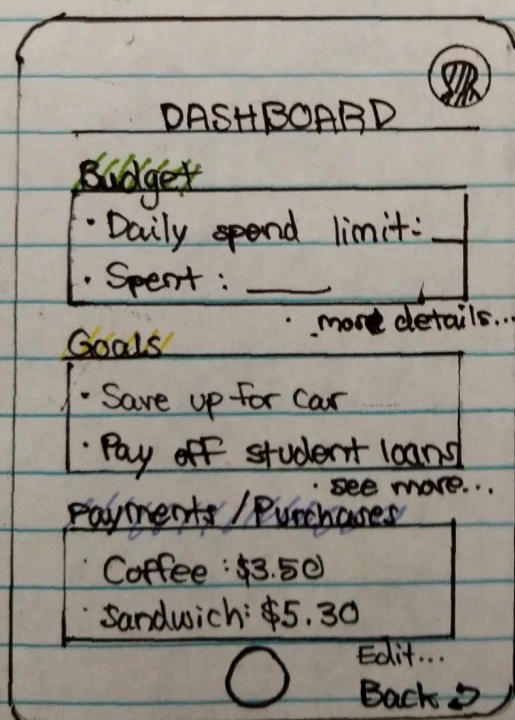 DASHBOARD
Budget
· Daily spend limit: __
· Spent : ____
· more details...
Goals
· Save up for car
· Pay off student loans
· see more...
Payments / Purchases
· Coffee : $3.50
· Sandwich: $5.30
Edit...
Back